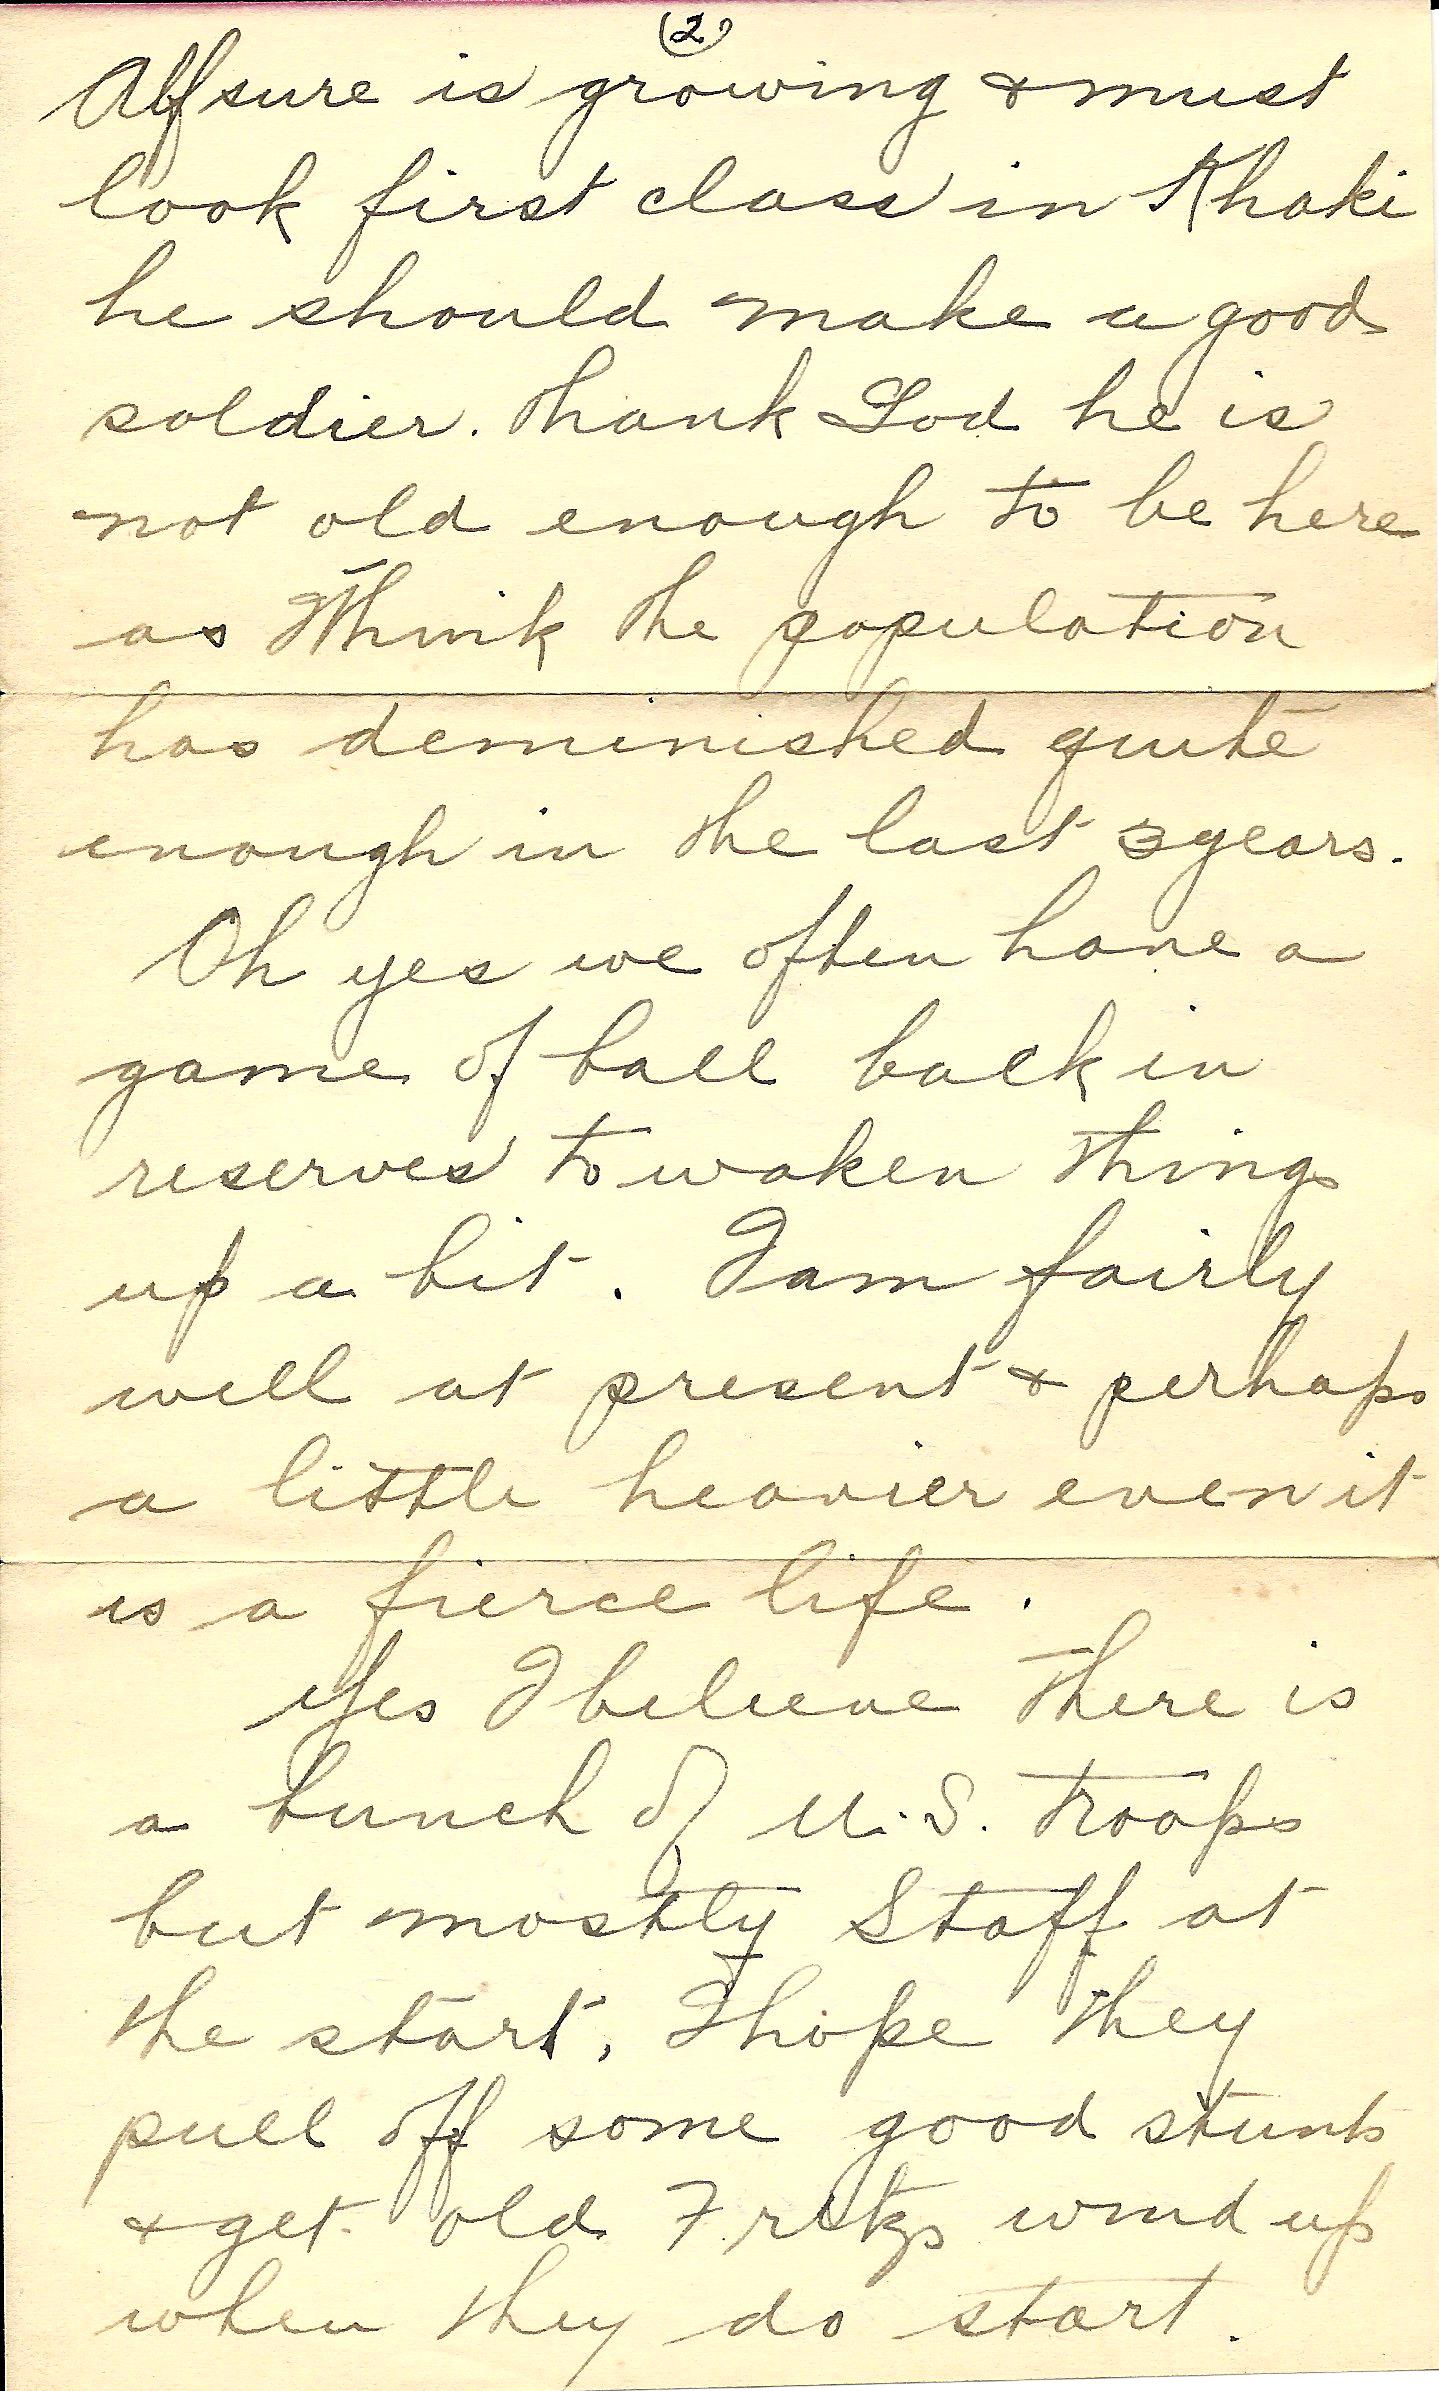 (2)
Alf sure is growing & must
look first class in Khaki
he should make a good
soldier. Thank God he is
not old enough to be here
as I think the population
has deminished quite
enough in the last 3 years.
Oh yes we often have a
game of ball back in
reserves to waken things
up a bit. I am fairly
well at present & perhaps
a little heavier even it
is a fierce life.
Yes I believe there is
a bunch of U.S. troops
but mostly Staff at
the start, I hope they
pull off some good stunts
& get old Fritzs wind up
when they do start.